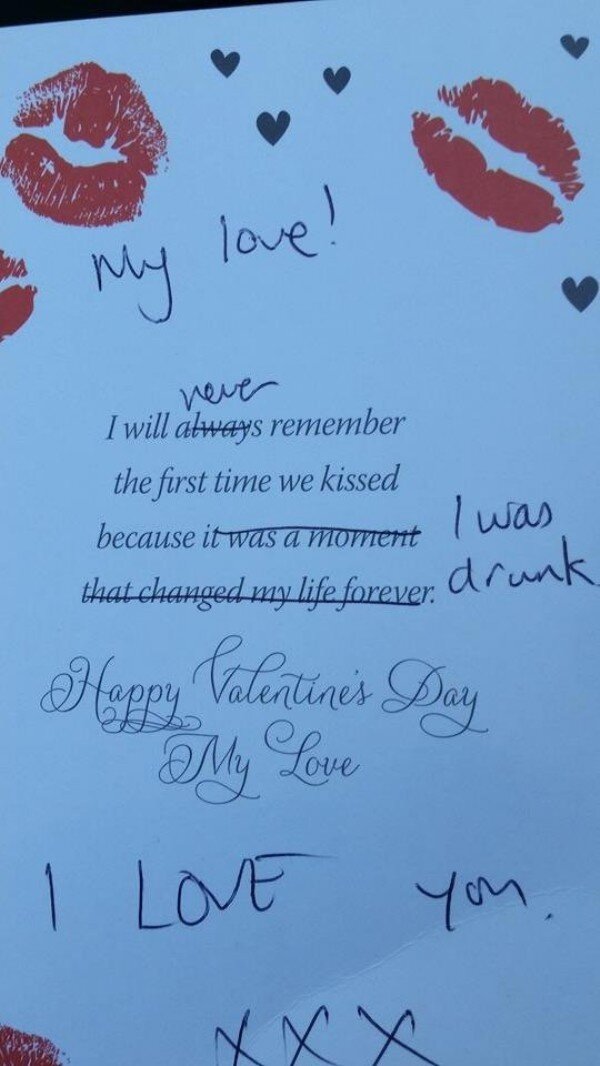 My love!
never
I will always remember
the first time we kissed
because it was a moment I was
that changed my life forever. drunk
Happy Valentine's Day
My Love
I LOVE You.
XXX